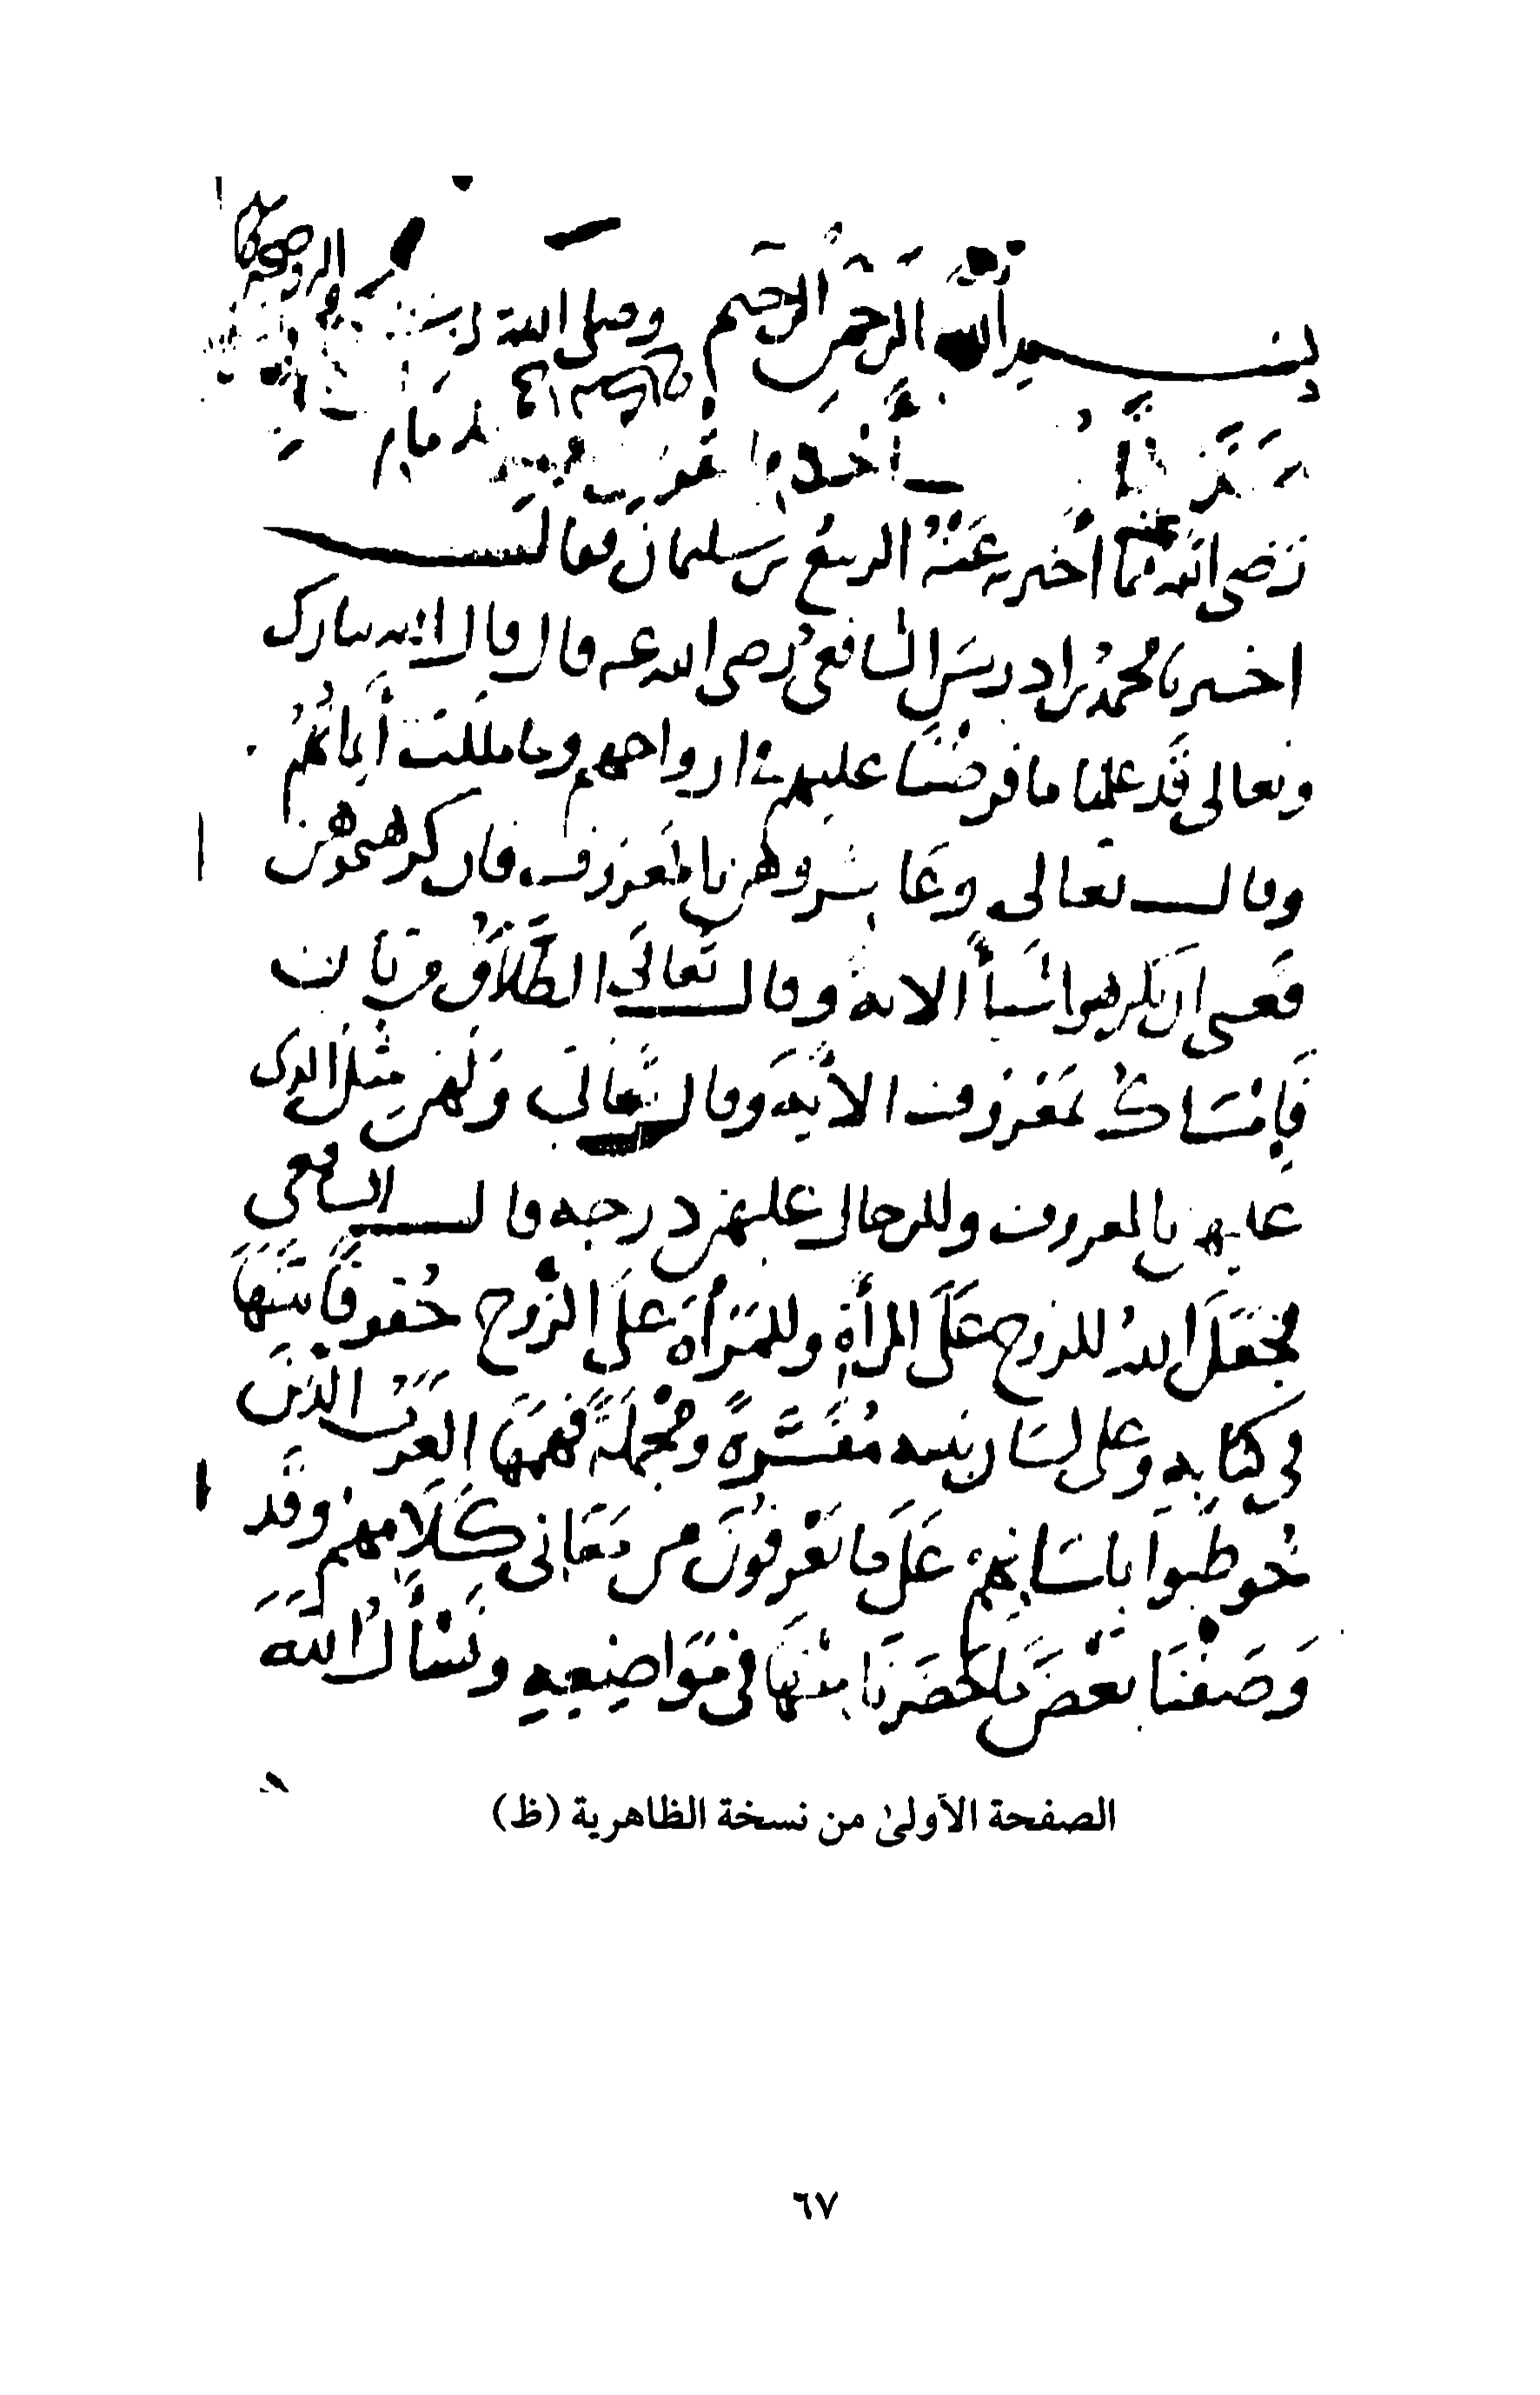 بسم الله الرحمن الرحيم وصلى الله
أخبرنا
رضى الله عنه مما أخبر به عنه الربيع بن سليمان فقال
اخبرنا محمد بن ادريس الشافعى رضى الله عنه قال قال الله تبارك
وتعالى قد علمنا ما فرضنا عليهم فى ازواجهم وما ملكت أيمانهم
وقال تعالى وعاشروهن بالمعروف فان كرهتموهن
فعسى ان تكرهوا شيأ الاية وقال تعالى الطلاق مرتان
فإمساك بمعروف الآية وقال تعالى ولهن مثل الذى
عليهن بالمعروف وللرجال عليهن درجة قال الشافعى
فجعل الله للزوج على المرأة وللمرأة على الزوج حقوقا بينها
فى كتابه وعلى لسان نبيه مفسرة ومجملة فهمها العرب الذين
خوطبوا بلسانهم على ما يعرفون من معانى كلامهم وقد
وصفنا بعض ما حضرنا منها فى مواضعه ونسأل الله
الصفحة الأولىٰ من نسخة الظاهرية (ظ)
٦٧